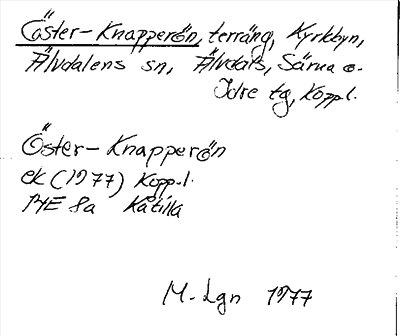 Öster-Knapperön, terräng, Kyrkbyn,
Älvdalens sn, Älvdals, Särna o.
Idre tg, Koppl.
Öster-Knapperön
ek (1977) Koppl.
14E 8a Kåtilla
M. Lgn 1977